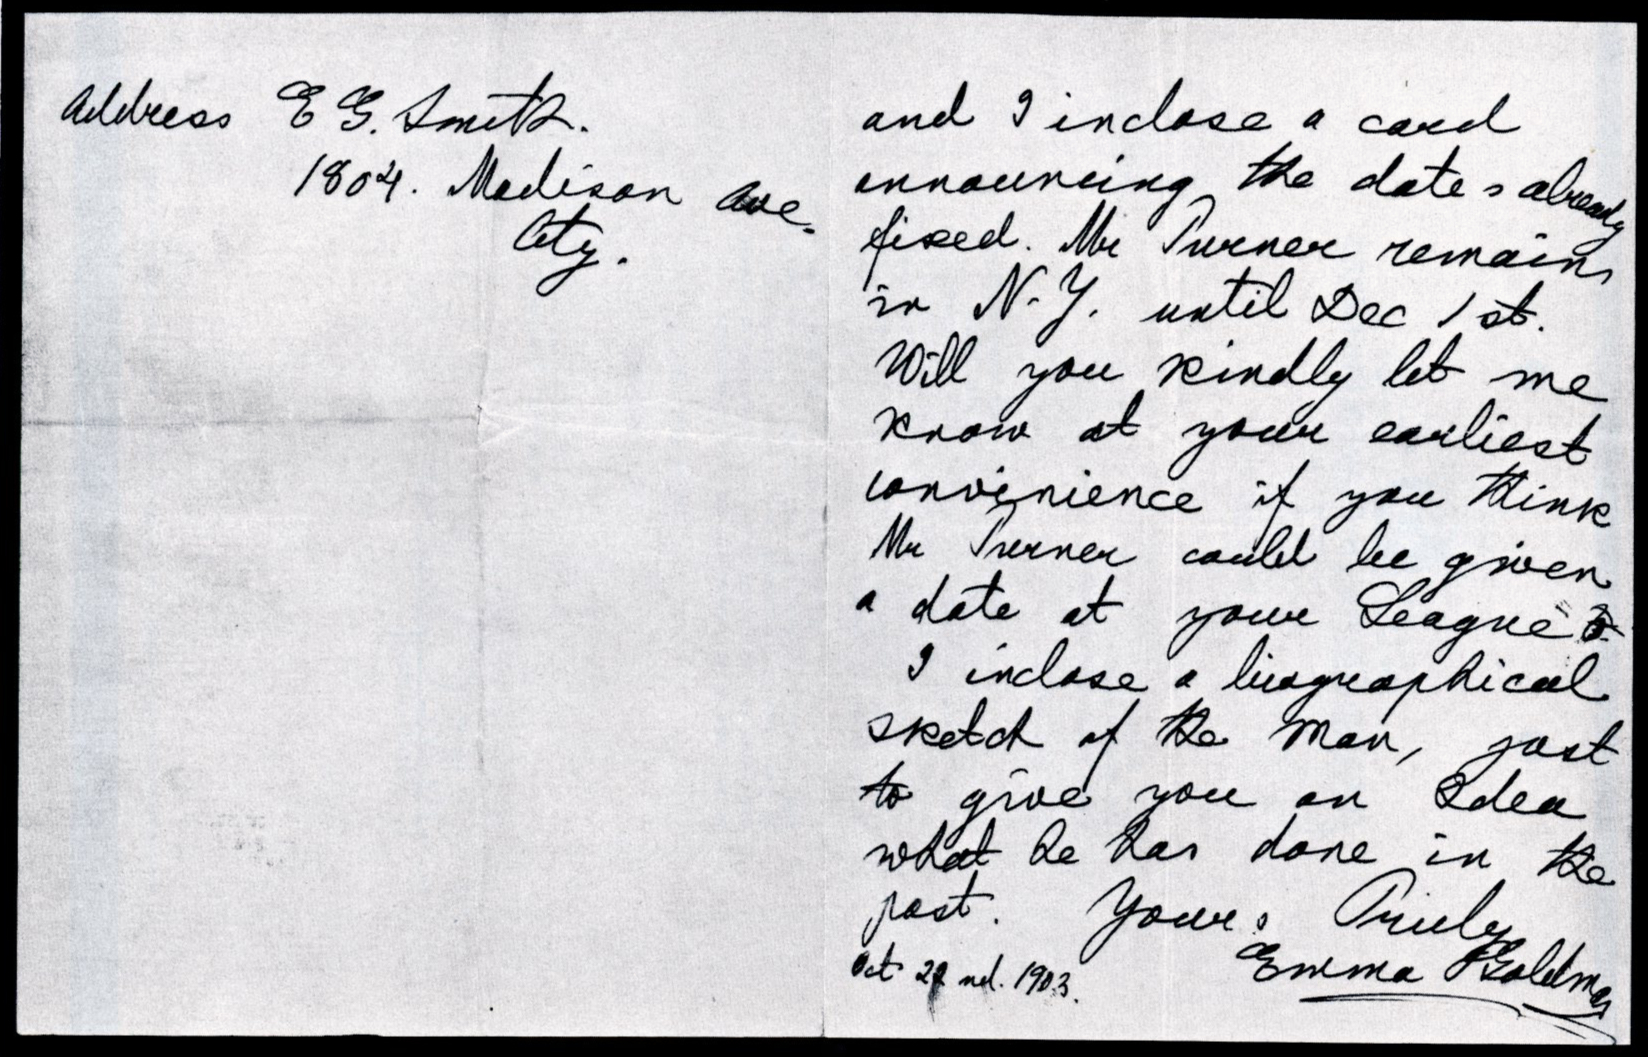 Address E G. Smith.
1804. Madison Ave.
City.
and I inclose a card
announcing the dates already
fixed. Mr Turner remains
in N.Y. until Dec 1st.
Will you kindly let me
know at your earliest
convinience if you think
Mr Turner could be given
a date at your League
I inclose a biographical
sketch of the Man, just
to give you an Idea
what he has done in the
past. Yours Truly
Emma Goldman
Oct 22nd. 1903.